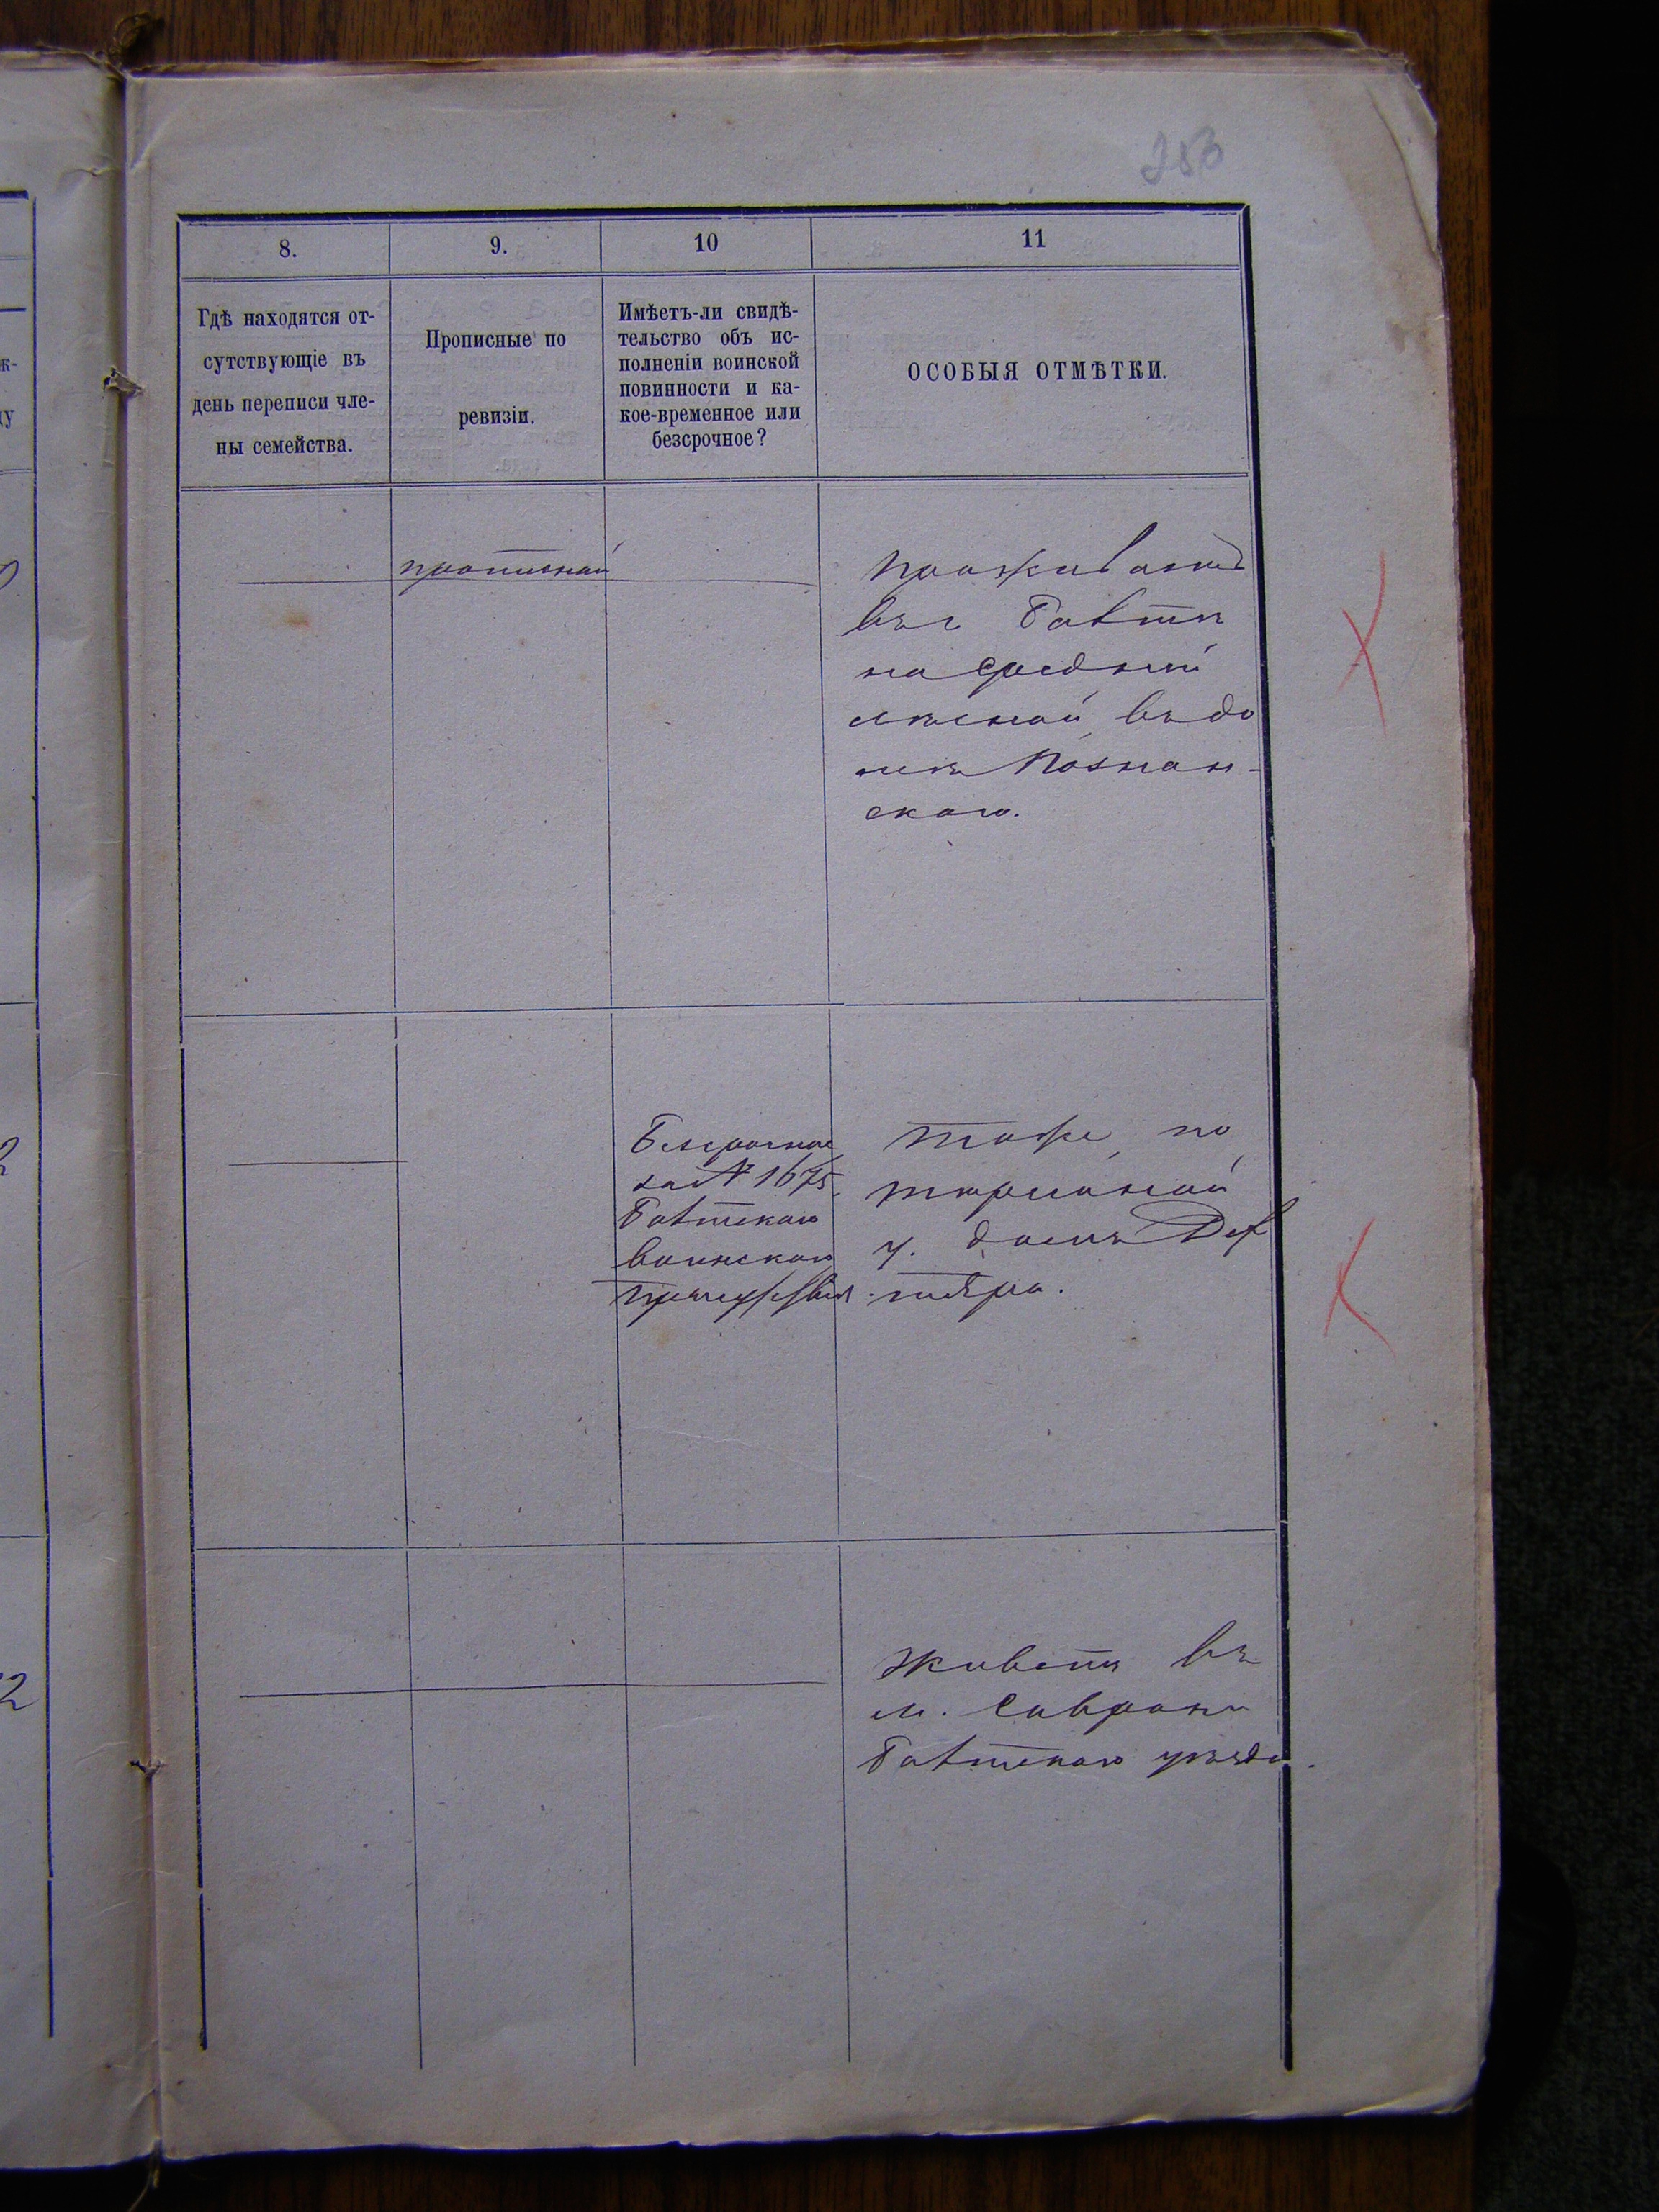 253
8.
9.
10
11
Гдѣ находятся от-
сутствующіе въ
день переписи чле-
ны семейства.
Прописные по
ревизіи.
Имѣетъ-ли свидѣ-
тельство объ ис-
полненіи воинской
повинности и ка-
кое-временное или
безсрочное?
ОСОБЫЯ ОТМѢТКИ.
прописной
проживаетъ
въ г Балтѣ
на средней
лѣсной въ до
мѣ Познан-
скаго.
Безсрочное
за № 1675
Балтскаго
воинскаго
тоже, по
у. домъ
Живетъ въ
м. Саврани
Балтскаго уѣзда.